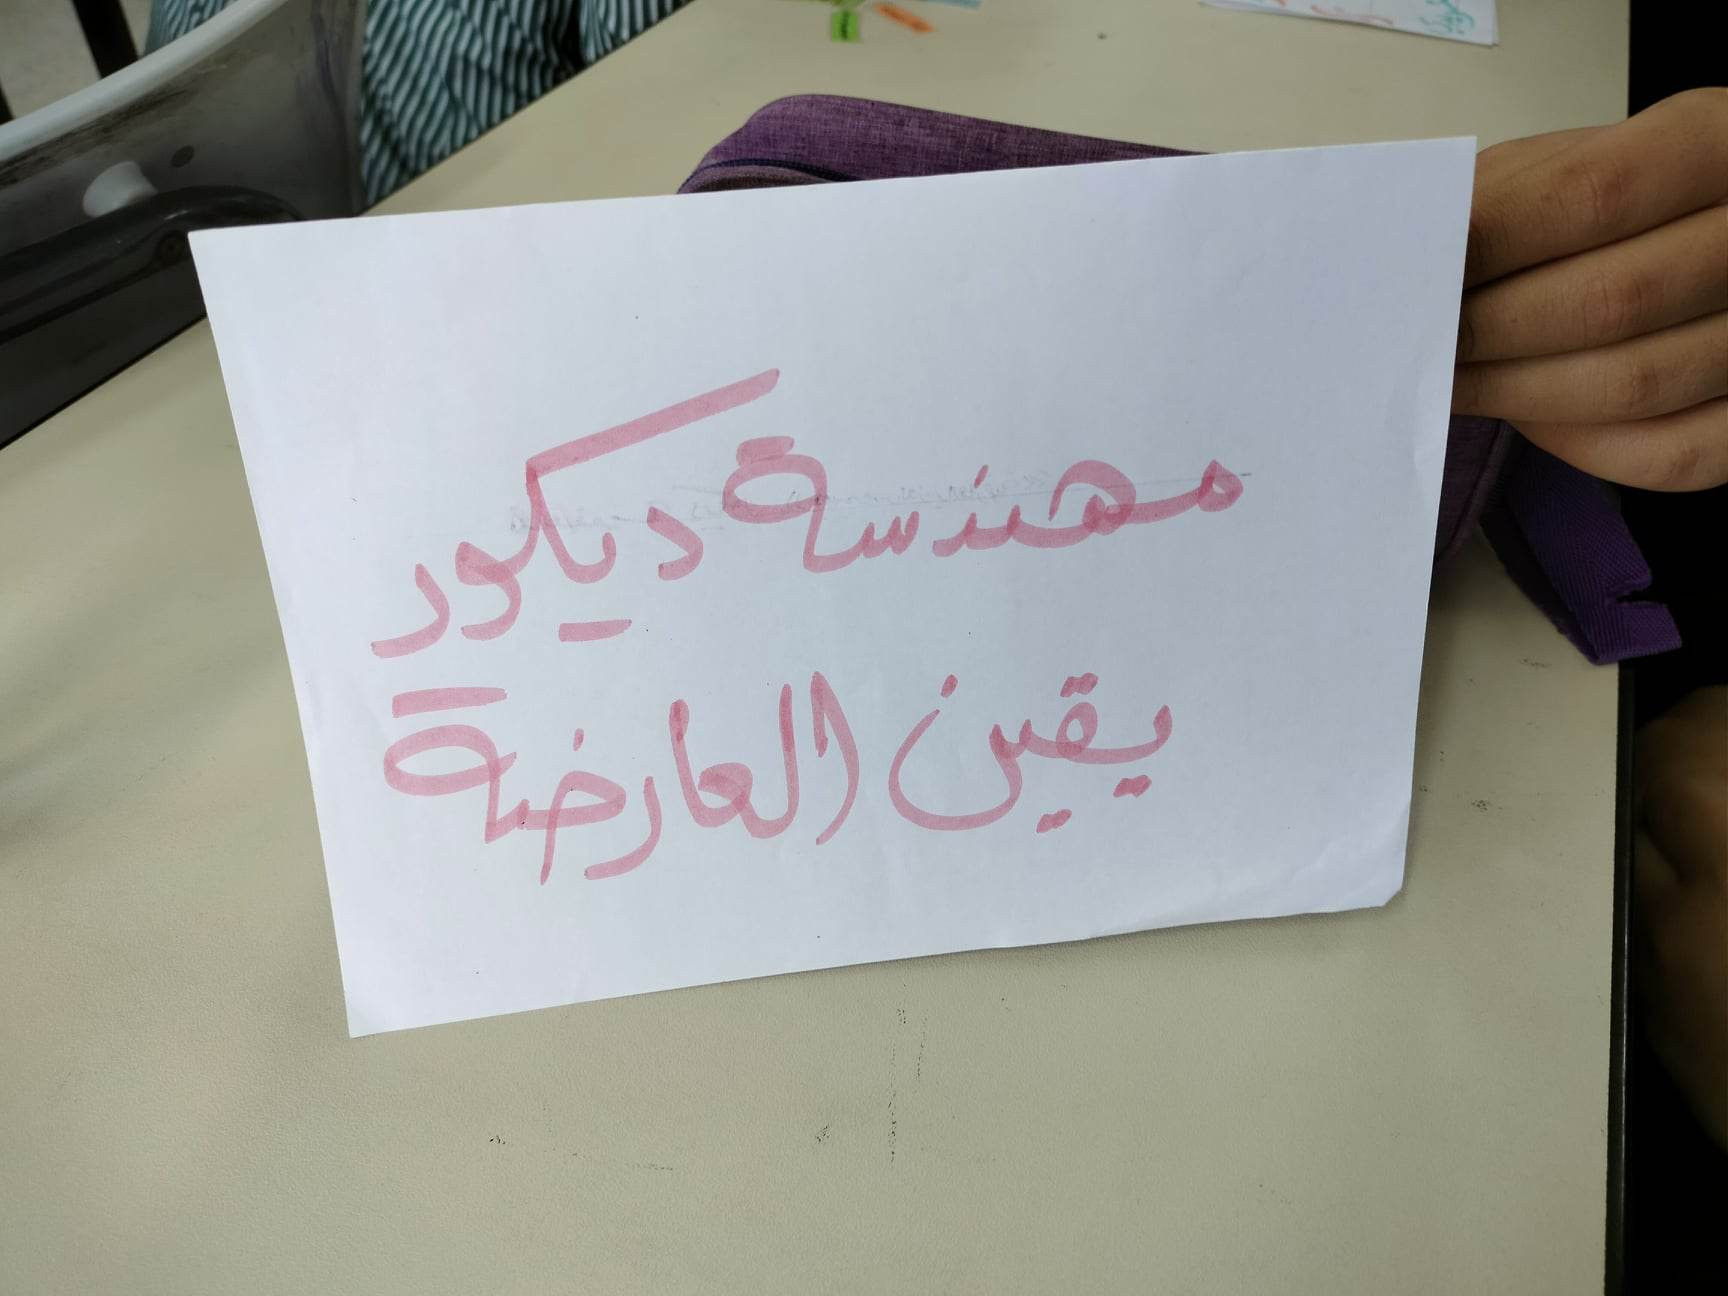 مهندسة ديكور
يقين العارضة